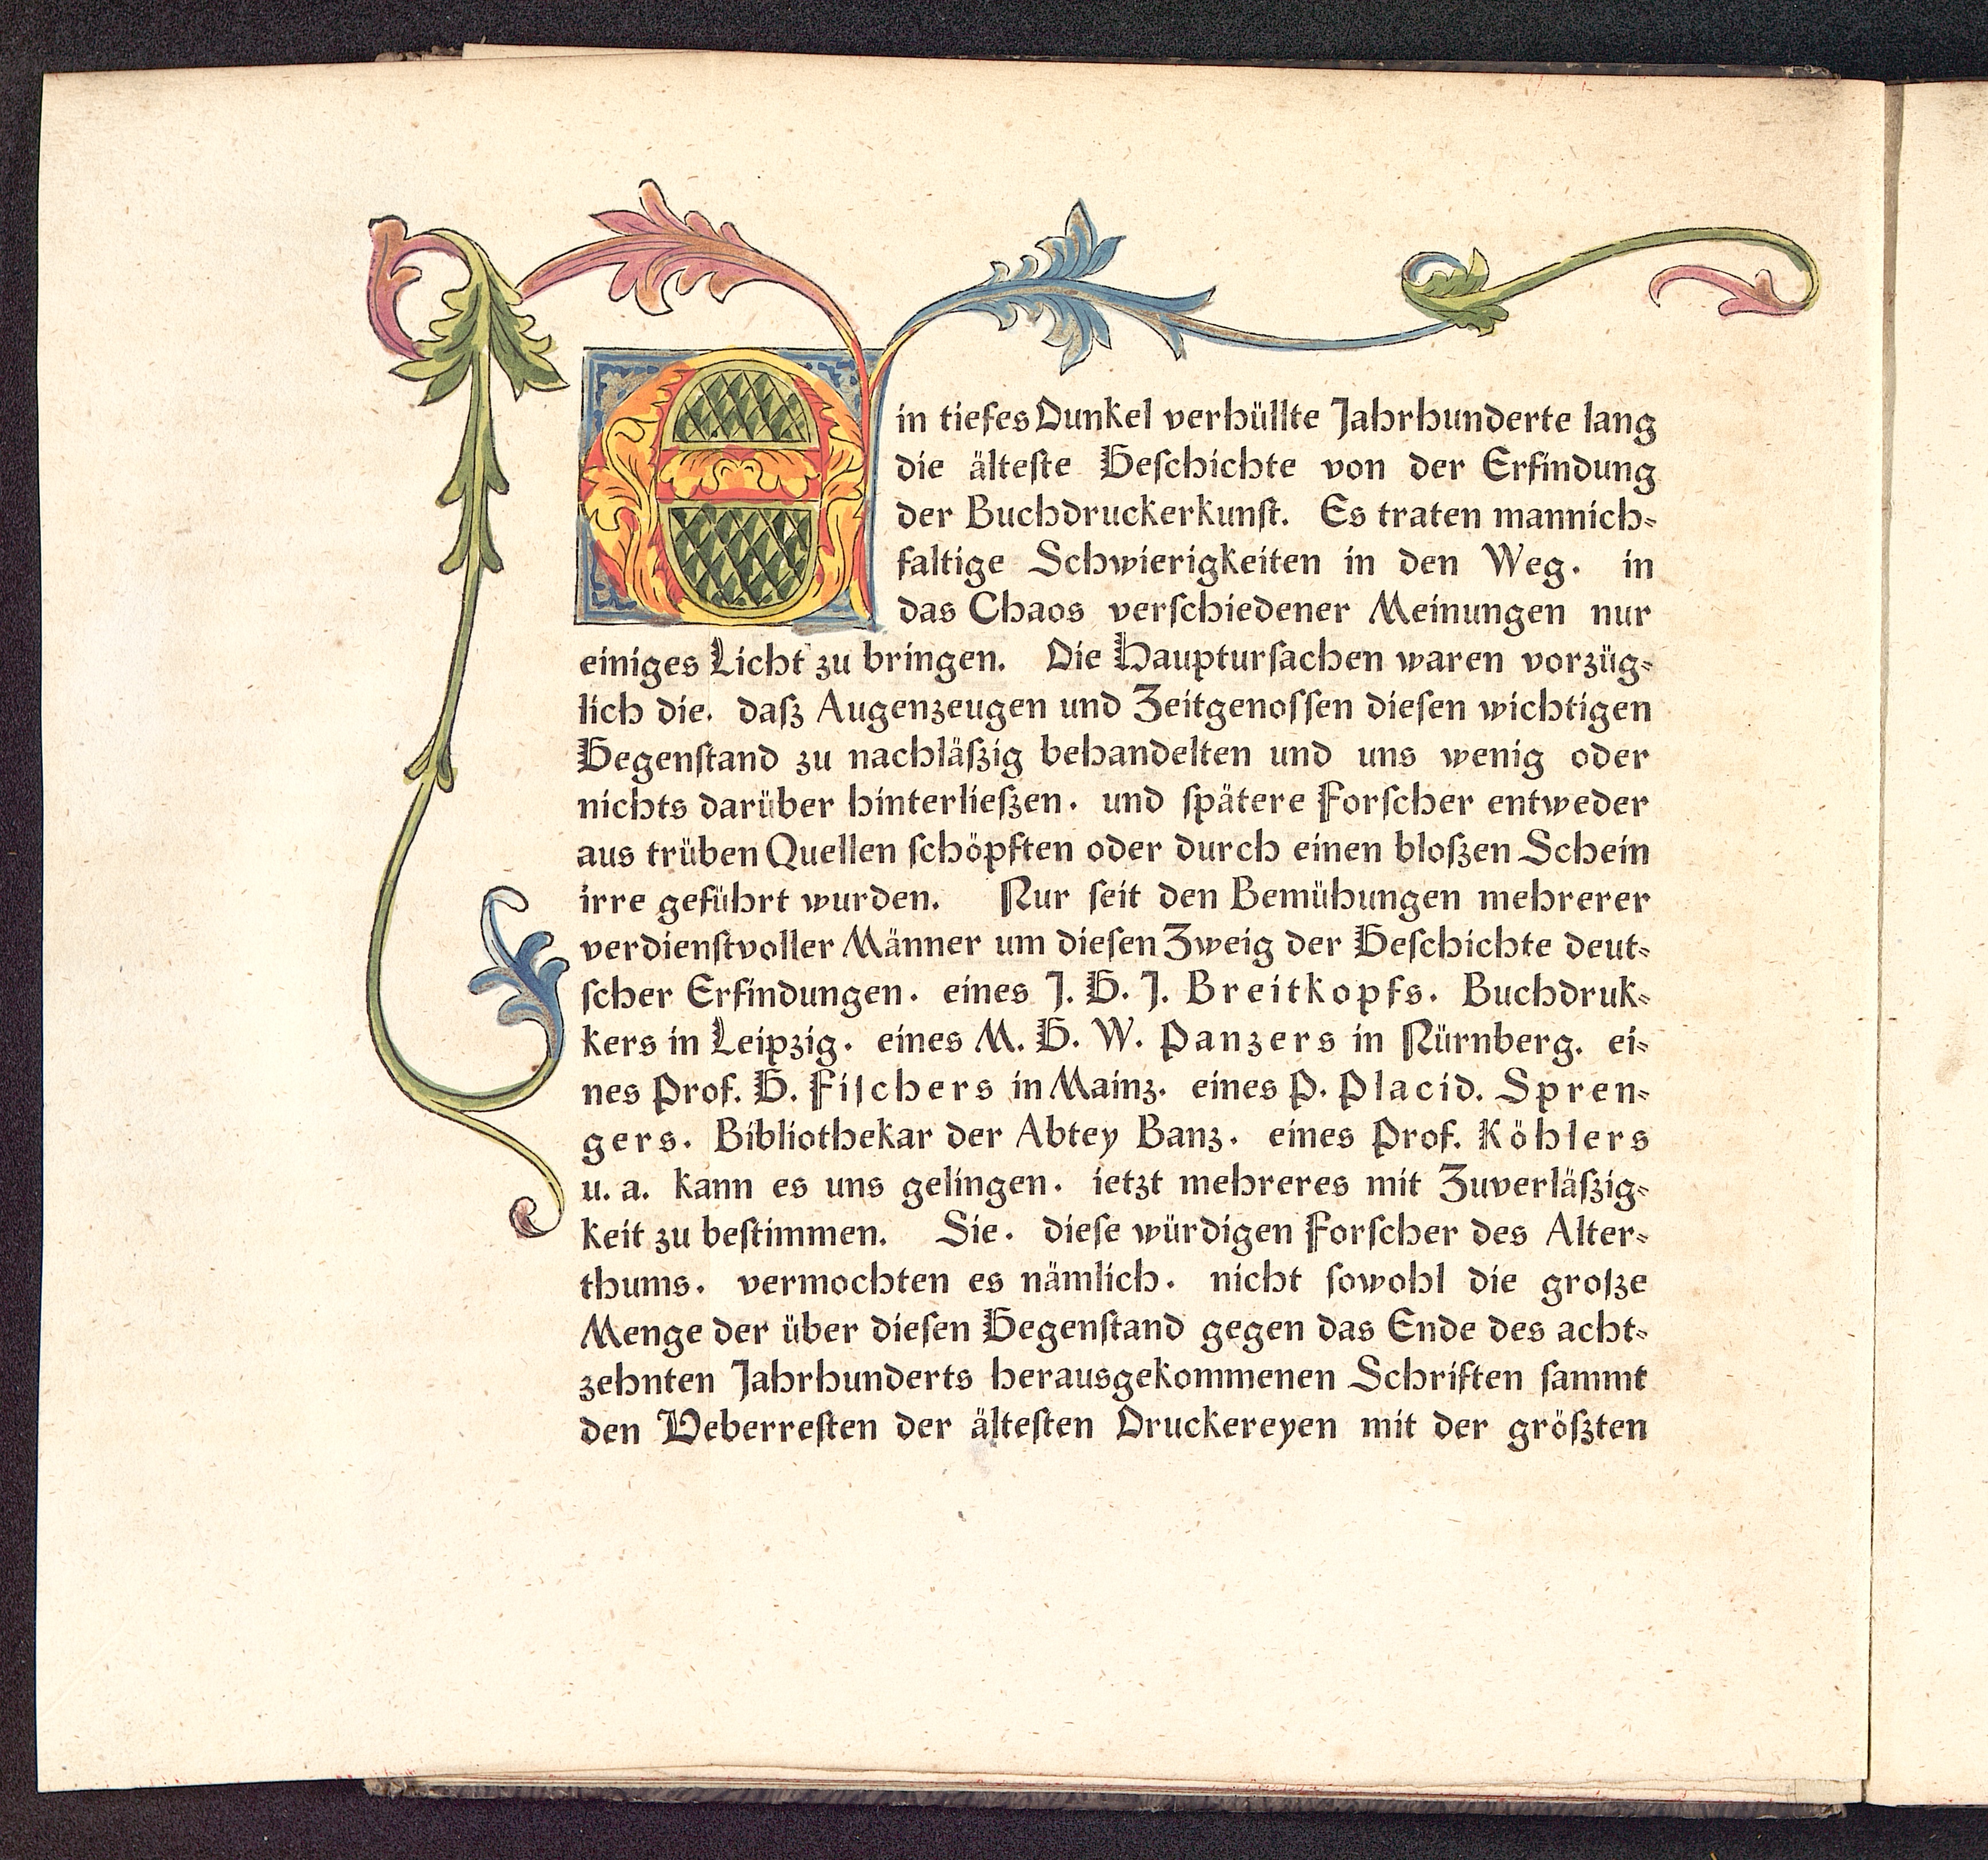 Ein tiefes Dunkel verhüllte Jahrhunderte lang
die älteſte Geſchichte von der Erfindung
der Buchdruckerkunſt. Es traten mannich-
faltige Schwierigkeiten in den Weg. in
das Chaos verſchiedener Meinungen nur
einiges Licht zu bringen. Die Haupturſachen waren vorzüg-
lich die. daſz Augenzeugen und Zeitgenoſſen dieſen wichtigen
Gegenſtand zu nachläſzig behandelten und uns wenig oder
nichts darüber hinterlieſzen. und ſpätere Forſcher entweder
aus trüben Quellen ſchöpften oder durch einen bloſzen Schein
irre geführt wurden. Nur ſeit den Bemühungen mehrerer
verdienſtvoller Männer um dieſen Zweig der Geſchichte deut-
ſcher Erfindungen. eines J. G. J. Breitkopfs. Buchdruk-
kers in Leipzig. eines M. G. W. Panzers in Nürnberg. ei-
nes Prof. G. Fiſchers in Mainz. eines P. Placid. Spren-
gers. Bibliothekar der Abtey Banz. eines Prof. Köhlers
u. a. kann es uns gelingen. ietzt mehreres mit Zuverläſzig-
keit zu beſtimmen. Sie. dieſe würdigen Forſcher des Alter-
thums. vermochten es nämlich. nicht ſowohl die groſze
Menge der über dieſen Gegenſtand gegen das Ende des acht-
zehnten Jahrhunderts herausgekommenen Schriften ſammt
den Ueberreſten der älteſten Druckereyen mit der gröſzten